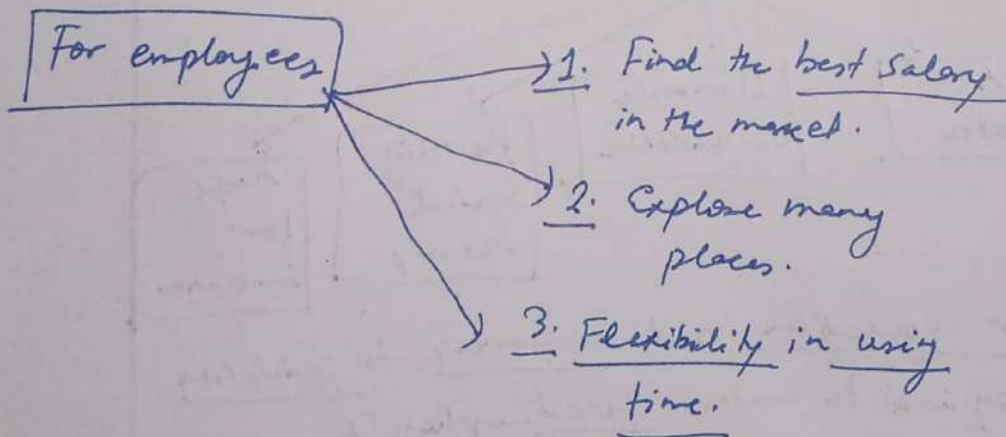 For employees
1. Find the best salary
in the market.
2. Explore many
places.
3. Flexibility in using
time.